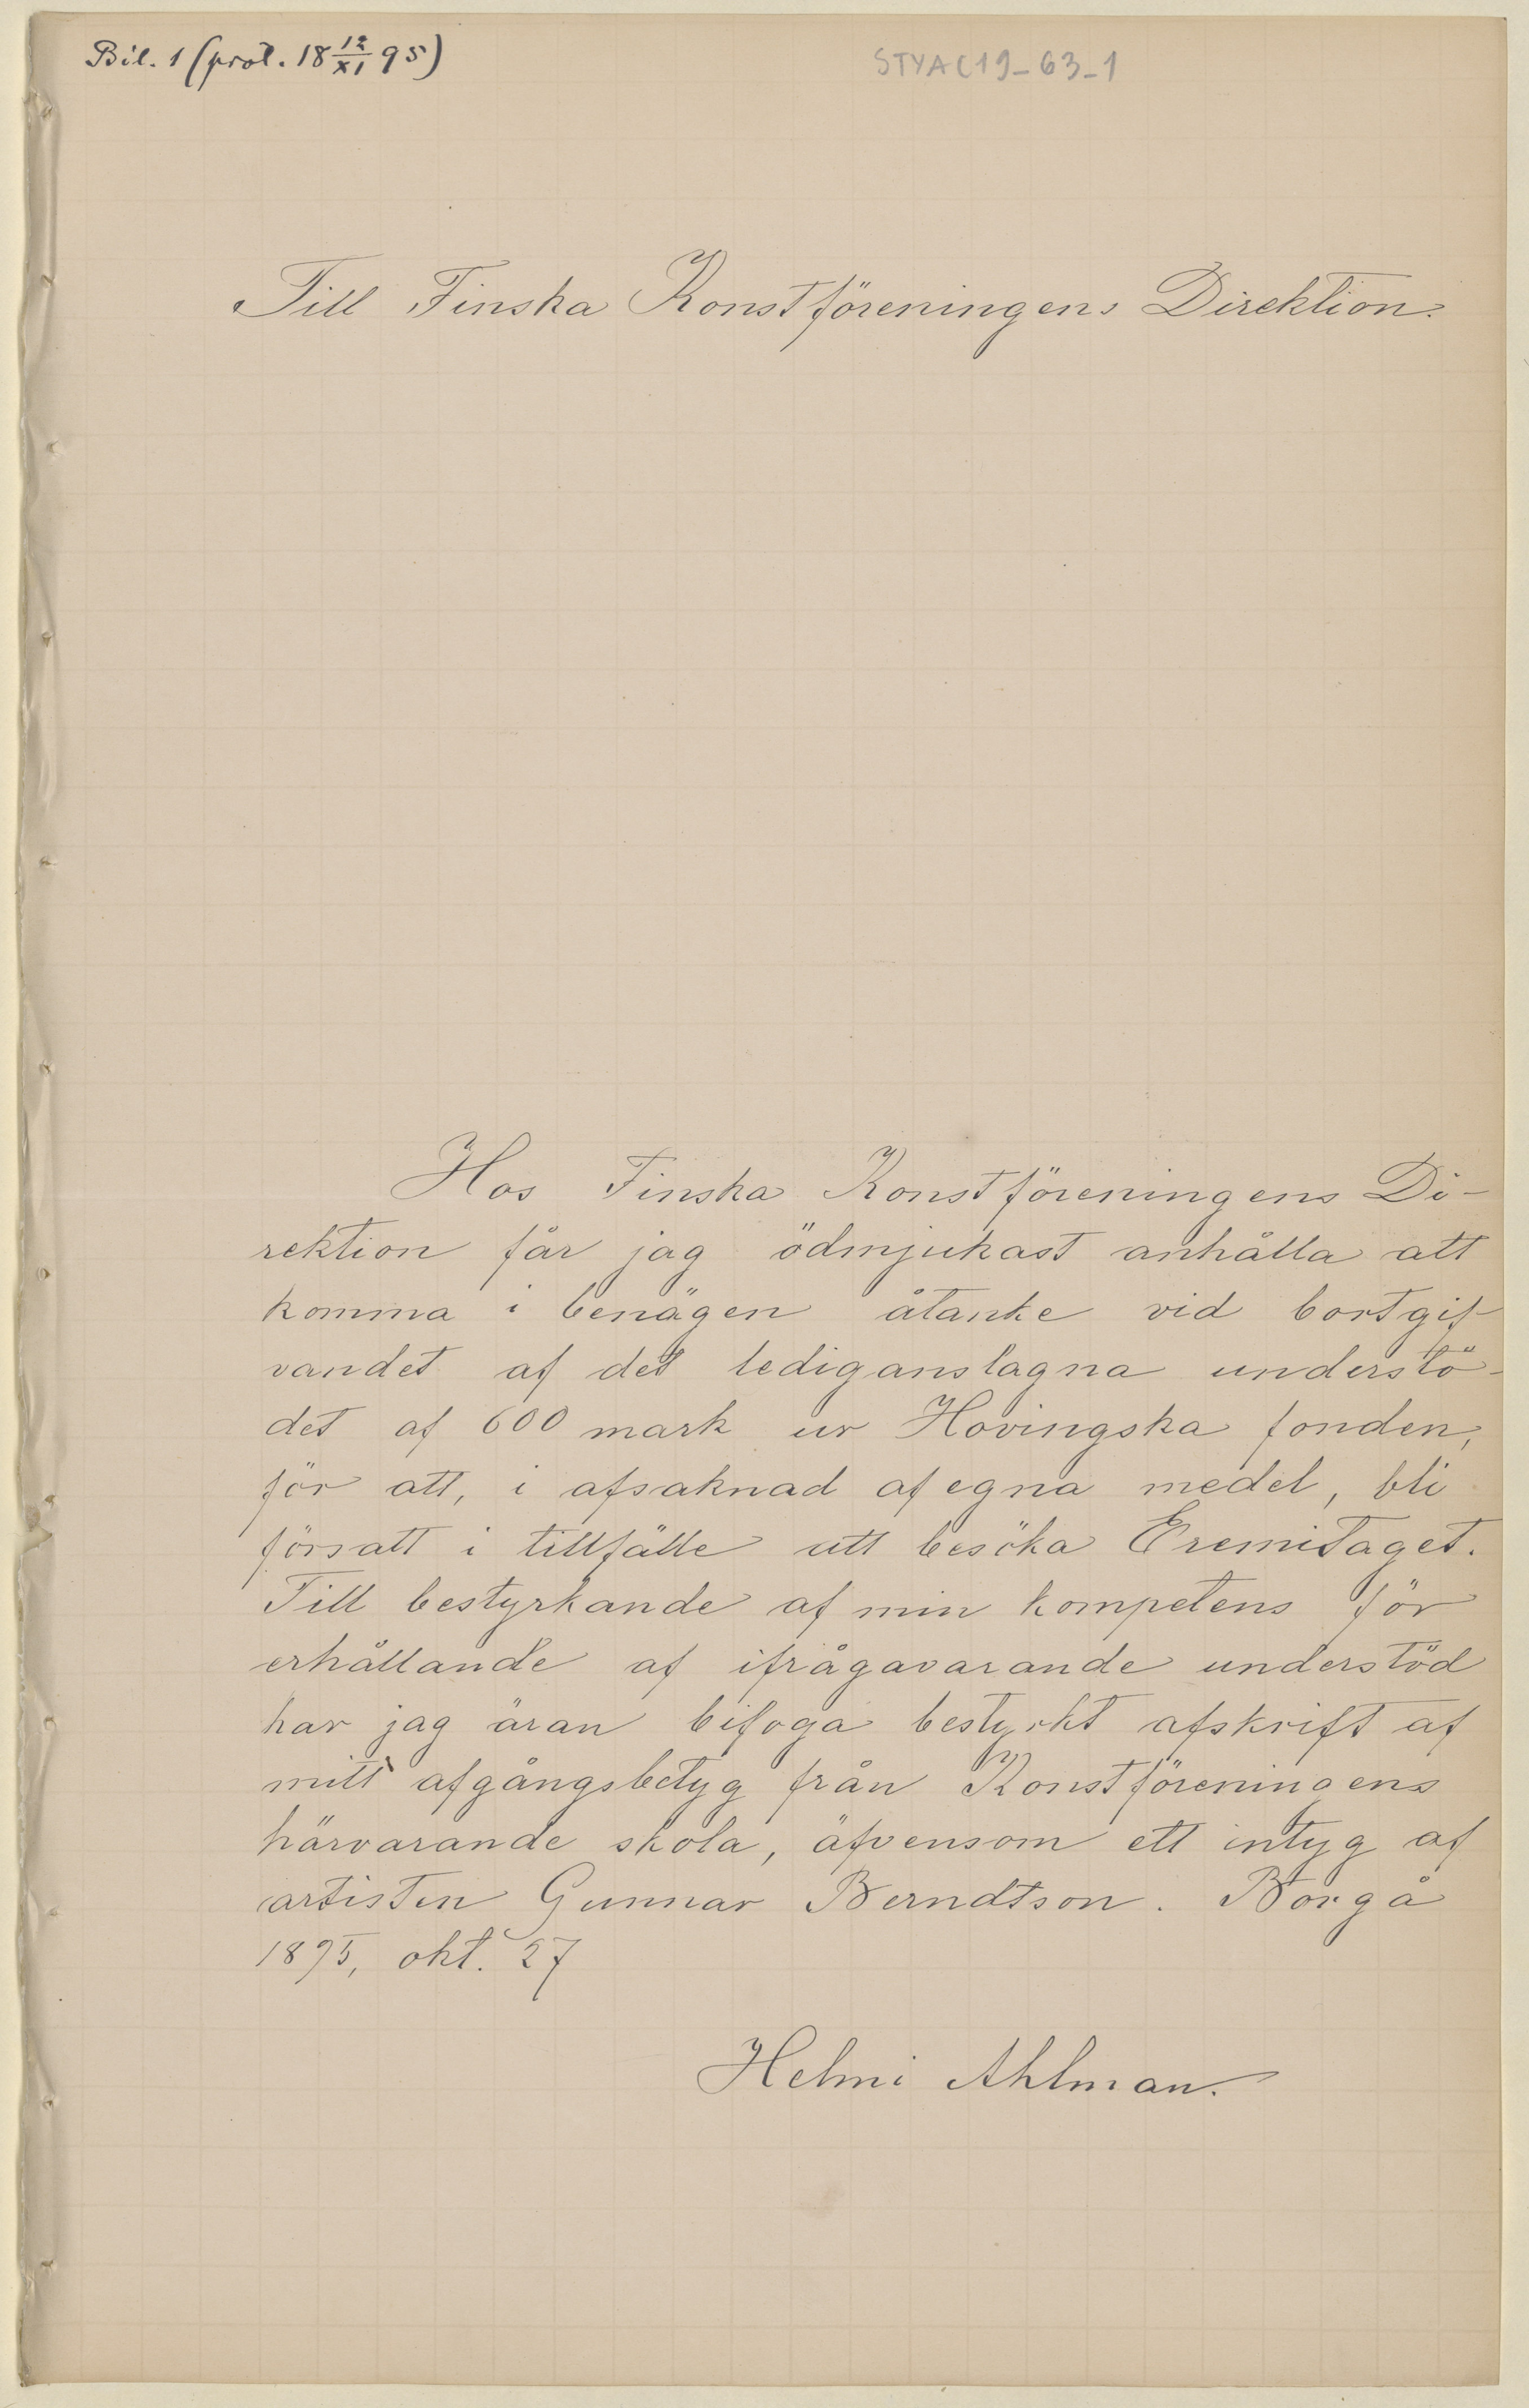 Bil. 1 (prot. 18 12/XI 95)
STYA C19_63_1
Till Finska Konstföreningens Direktion.
Hos Finska Konstföreningens Di-
rektion får jag ödmjukast anhålla att
komma i benägen åtanke vid bortgif-
vandet af det lediganslagna understö-
det af 600 mark ur Hovingska fonden,
för att, i afsaknad af egna medel, bli
försatt i tillfälle att besöka Eremitaget.
Till bestyrkande af min kompetens för
erhållande af ifrågavarande understöd
har jag äran bifoga bestyrkt afskrift af
mitt afgångsbetyg från Konstföreningens
härvarande skola, äfvensom ett intyg af
artisten Gunnar Berndtson. Borgå
1895, okt. 27
Helmi Ahlman.